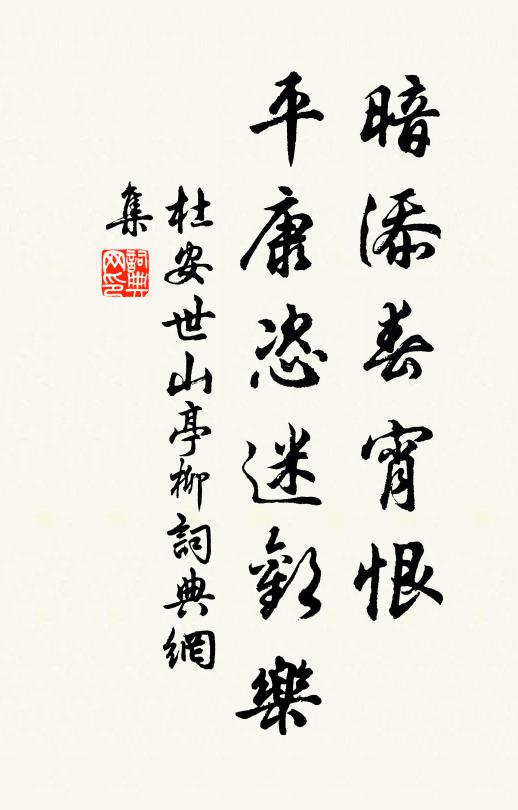 暗添春宵恨
平康恣迷歡樂
杜安世山亭柳詞典網
集
詞典網印